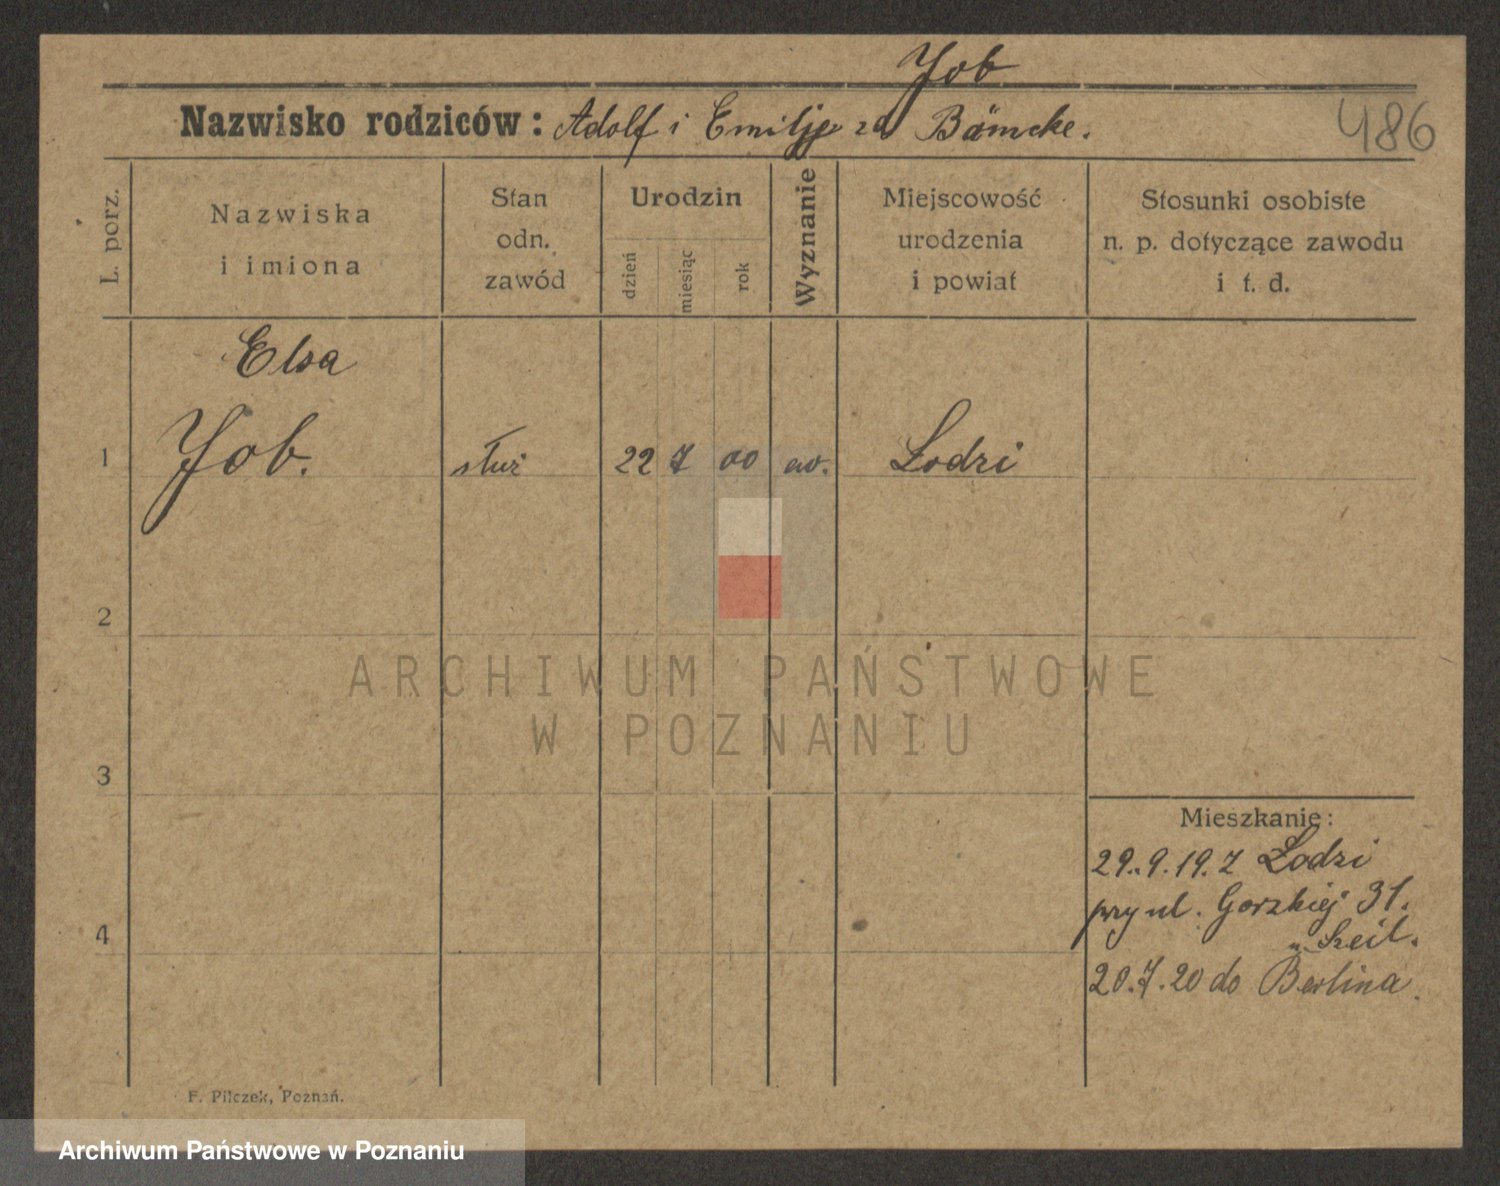 Job
Nazwisko rodziców: Adolf i Emilje za Bämcke.
486
L. porz.
Nazwiska
i imiona
Stan
odn.
zawód
Urodzin
dzień
miesiąc
rok
Wyznanie
Miejscowość
urodzenia
i powiat
Stosunki osobiste
n. p. dotyczące zawodu
i t. d.
Elsa
1 Job. służ 22 7 00 ew. Lodzi
2
ARCHIWUM PAŃSTWOWE
W POZNANIU
3
Mieszkanie:
29.9.19. z Lodzi
przy ul. Gorzkiej 31.
4
20.7.20 do Berlina.
F. Pilczek, Poznań.
Archiwum Państwowe w Poznaniu